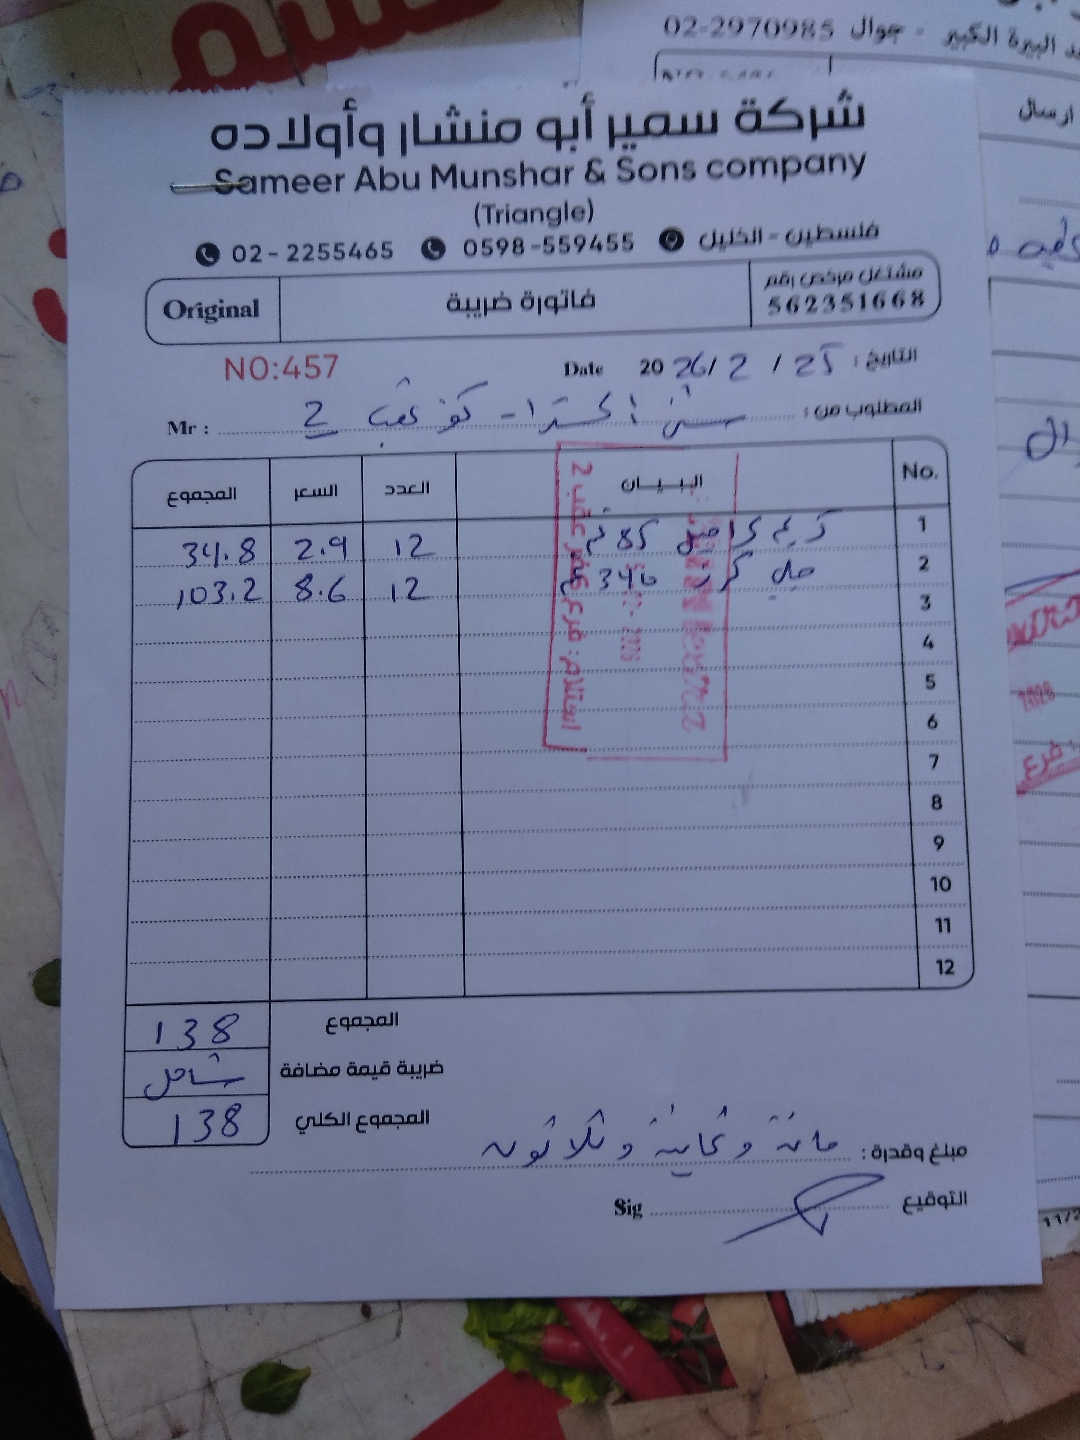 02-2970985 جوال - البيرة الكبير
ارسال
شركة سمير أبو منشار وأولاده
Sameer Abu Munshar & Sons company
(Triangle)
02-2255465 0598-559455 فلسطين - الخليل
Original فاتورة ضريبة مشتغل مرخص رقم
562351668
NO:457 Date 2026/2/25 التاريخ :
Mr : المطلوب من : اكسترا - كفر عقب 2
No. البيان العدد السعر المجموع
1 85 12 2.9 34.8
2 346 12 8.6 103.2
3
4
5
6
7
8
9
10
11
12
استلام: فرع كفر عقب 2
2026
المجموع 138
ضريبة قيمة مضافة شامل
المجموع الكلي 138
مبلغ وقدرة : مائة وثمانية وثلاثون
Sig التوقيع
فرع